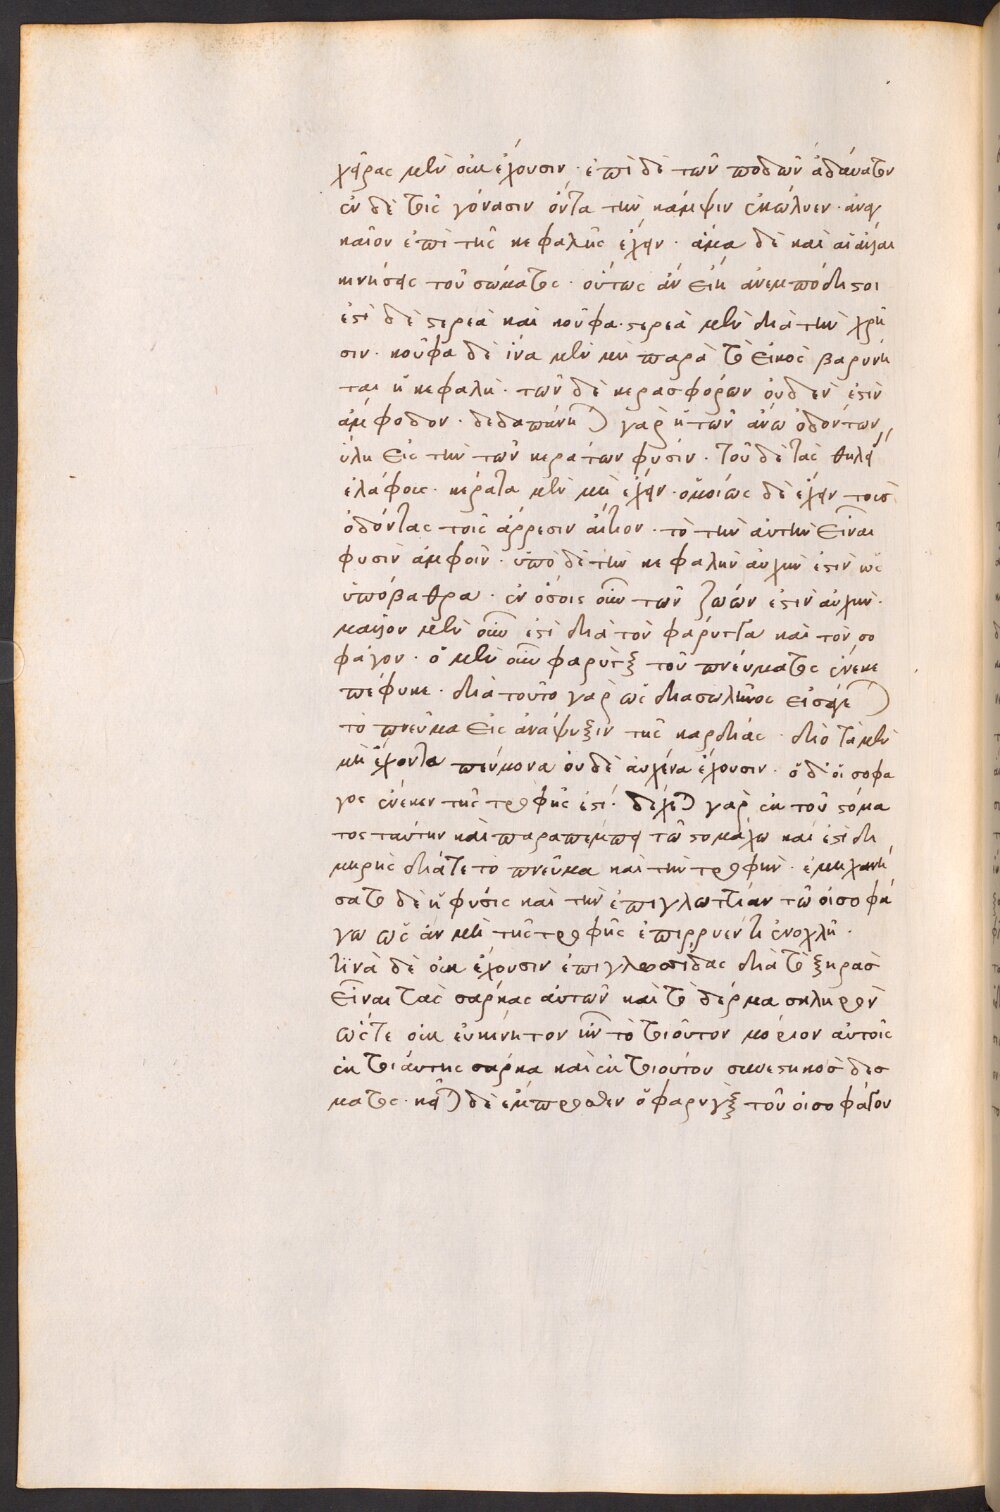 χεῖρας μὲν οὐκ ἔχουσιν· ἐπὶ δὲ τῶν ποδῶν ἀδύνατον
ἐν δὲ τοῖς γόνασιν ὄντα τὴν κάμψιν ἐκώλυεν· ἀναγ
καῖον ἐπὶ τῆς κεφαλῆς ἔχειν· ἅμα δὲ καὶ αἱ ἄλλαι
κινήσεις τοῦ σώματος· οὕτως ἂν εἴη ἀνεμπόδιστοι
ἐστὶ δὲ στερεὰ καὶ κοῦφα· στερεὰ μὲν διὰ τὴν χρῆ
σιν· κοῦφα δὲ ἵνα μὲν μὴ παρὰ τὸ εἰκὸς βαρυνή
ται ἡ κεφαλὴ· τῶν δὲ κερασφόρων οὐδέν ἐστιν
ἀμφόδον· δεδαπάνηται γὰρ ἡ τῶν ἄνω ὀδόντων
ὕλη εἰς τὴν τῶν κεράτων φύσιν· τοῦ δὲ τὰς θηλεί
ἐλάφοις· κέρατα μὲν μὴ ἔχειν· ὁμοίως δὲ ἔχειν τοὺς
ὀδόντας τοῖς ἄρρεσιν αἴτιον· τὸ τὴν αὐτὴν εἶναι
φύσιν ἀμφοῖν· ὑπὸ δὲ τὴν κεφαλὴν αὐχήν ἐστιν ὡς
ὑπόβαθρα· ἐν ὅσοις οὖν τῶν ζώων ἐστὶν αὐχὴν·
μᾶλλον μὲν οὖν ἐστὶ διὰ τὸν φάρυγγα καὶ τὸν σο
φάγον· ὁ μὲν οὖν φάρυγξ τοῦ πνεύματος ἕνεκε
πέφυκε· διὰ τοῦτο γὰρ ὡς διασωλῆνος εἰσάγεται
τὸ πνεῦμα εἰς ἀνάψυξιν τῆς καρδίας· διὸ τὰ μὲν
μὴ ἔχοντα πνεύμονα οὐδὲ αὐχένα ἔχουσιν· ὁ δ' οἰσοφα
γος ἕνεκεν τῆς τροφῆς ἐστί· δέχεται γὰρ ἐκ τοῦ στόμα
τος ταύτην καὶ παραπέμπει τῷ στομάχω καὶ ἐστὶ δι
μερὴς διά τε τὸ πνεῦμα καὶ τὴν τροφὴν· ἐμηχανή
σατο δὲ ἡ φύσις καὶ τὴν ἐπιγλωττίαν τῷ οἰσοφά
γω ὡς ἂν μὴ τῆς τροφῆς ἐπιρρυείη τι ἐνοχλῆ·
τινὰ δὲ οὐκ ἔχουσιν ἐπιγλωσσίδας διὰ τὸ ξηρὰς
εἶναι τὰς σάρκας αὐτῶν καὶ τὸ δέρμα σκληρὸν
ὥστε οὐκ εὐκίνητον ἦν τὸ τοιοῦτον μόριον αὐτοῖς
ἐκ τοιαύτης σάρκα καὶ ἐκ τοιούτου συνεστηκὸς δέρ
ματος· κεῖται δὲ ἔμπροσθεν ὁ φάρυγξ τοῦ οἰσοφάγου